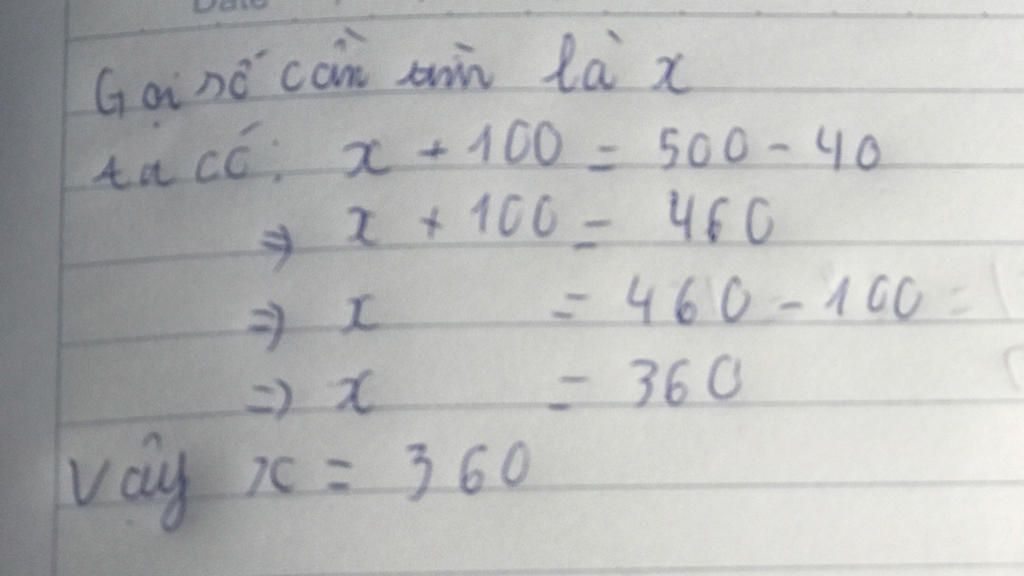 Date
Gọi số cần tìm là x
ta có: x + 100 = 500 - 40
⇒ x + 100 = 460
⇒ x = 460 - 100 =
⇒ x = 360
Vậy x = 360